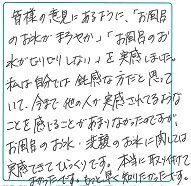 皆様の意見にあるように、「お風呂
のお水がまろやか」、「お風呂のお
水がピリピリしない」を実感しました。
私は自分では鈍感な方だと思って
いて、今まで他の人が実感されてるような
ことを感じることがあまりなかったのですが、
お風呂のお水・洗顔のお水に関しては
実感できてびっくりです。本当に取り付けて
よかったです。もっと早く知りたかったです。